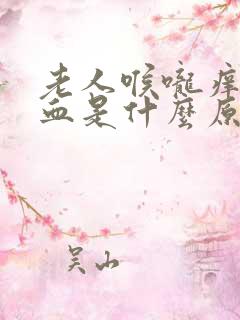 老人喉嚨痒
血是什麼原
吴山